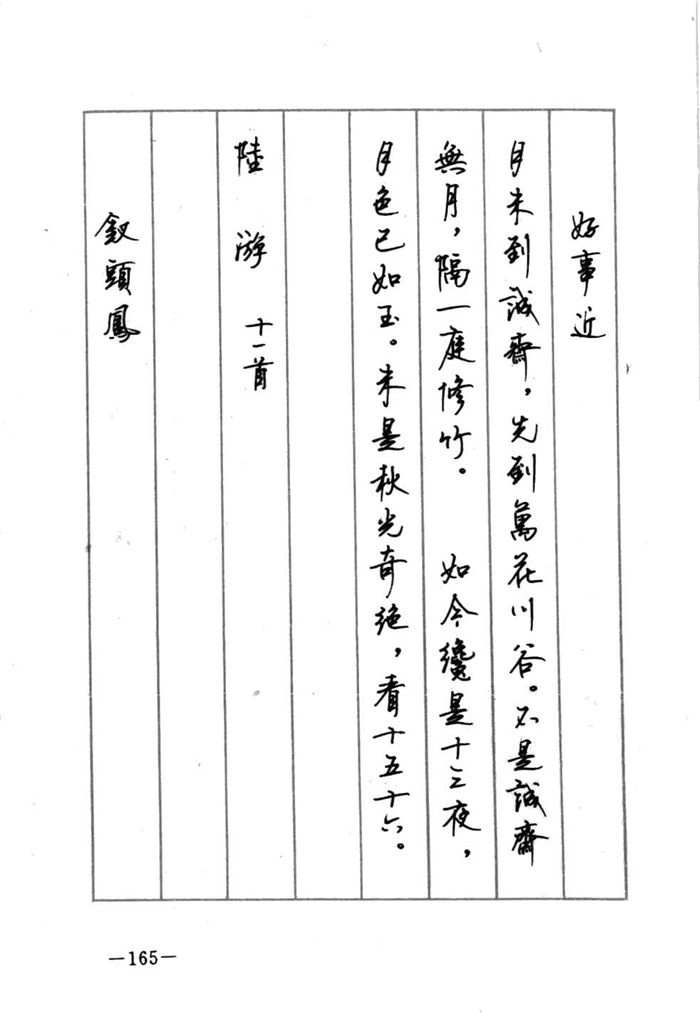 好事近
月未到誠齋，先到萬花川谷。不是誠齋
無月，隔一庭修竹。　如今纔是十三夜，
月色已如玉。未是秋光奇絶，看十五十六。
陸游　十一首
釵頭鳳
—165—